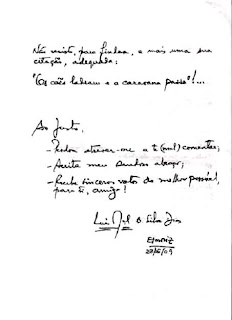 Não resisto, para findar, a mais uma sua
citação, adequada:
"Os cães ladram e a caravana passa"!...
Ao Justo,
- Perdoa atrever-me a ti (mal) comentar;
- Aceita meu abraço;
- Recebe sinceros votos do melhor possível,
para ti, amigo!
Silva
Estoril